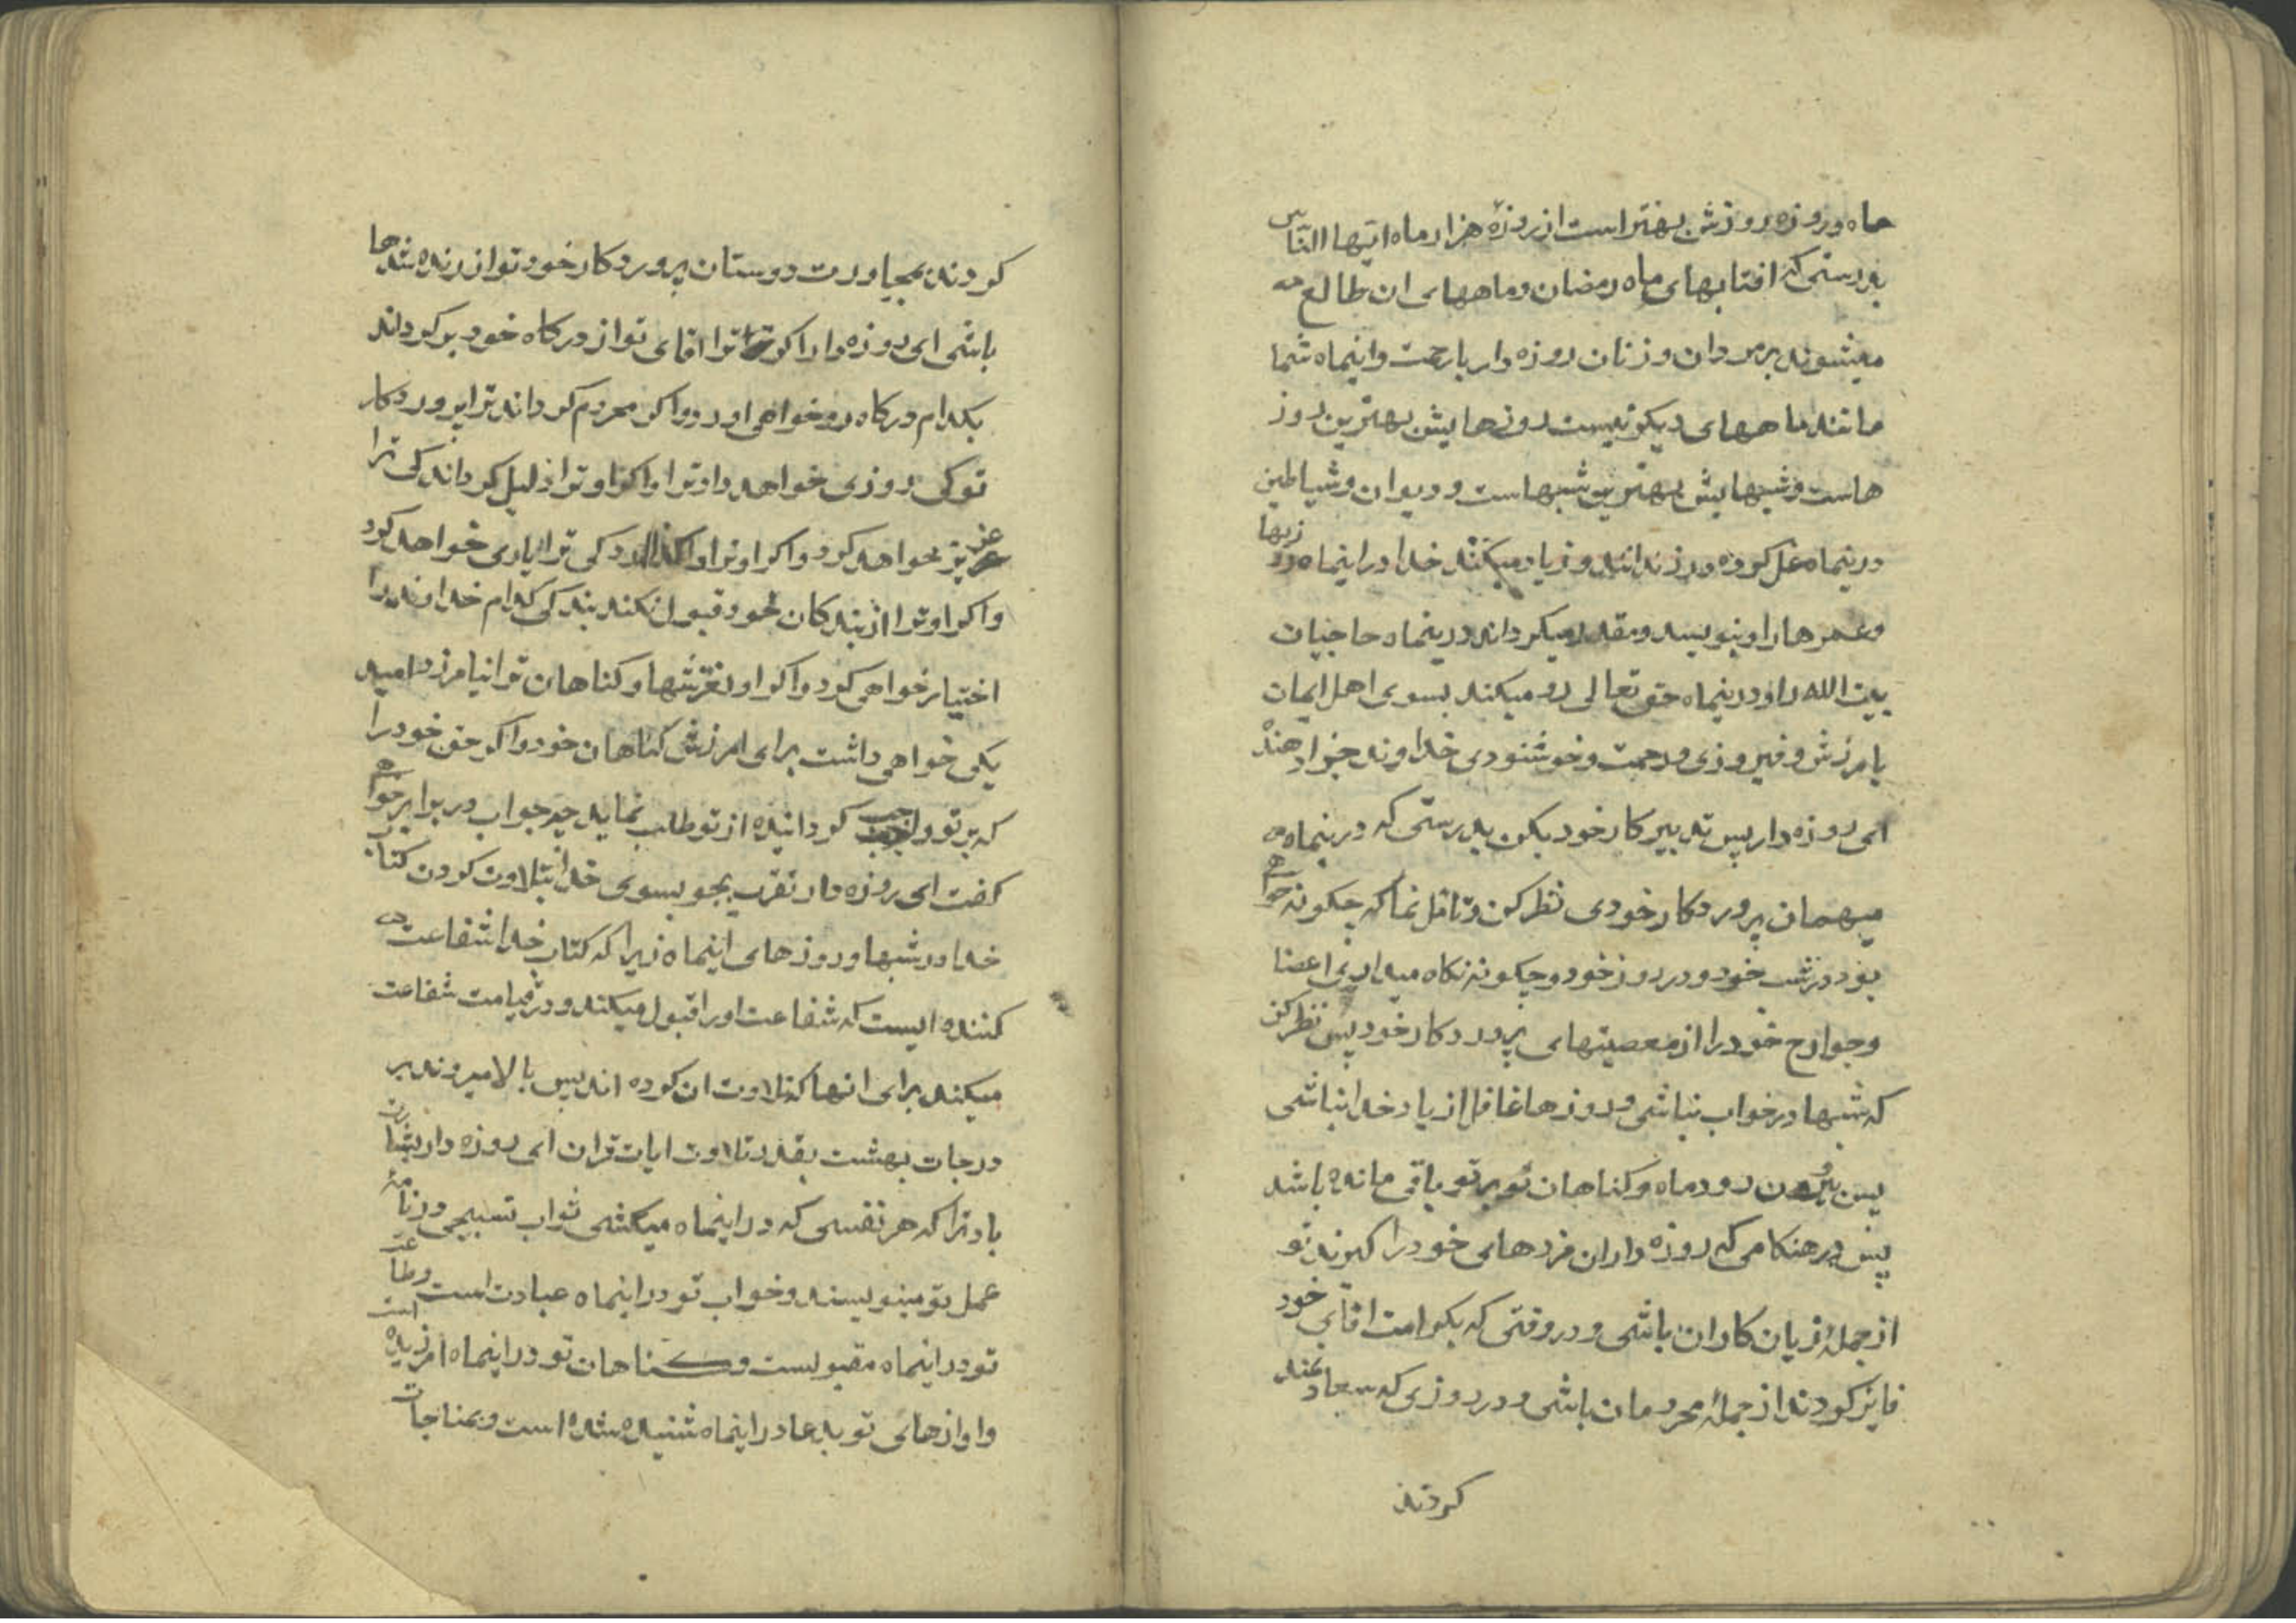 ماه و روزه روزش بهتر است از روزهٔ هزار ماه ایّها النّاس
بدرستی که افتابهای ماه رمضان و ماههای ان طالع
میشوند بر مردان و زنان روزه دار با رحمت و اینماه شما
مانند ماههای دیکر نیست روزهایش بهترین روز
هاست و شبهایش بهترین شبهاست و دیوان و شیاطین
درینماه غل کرده در زندانند و زیاد میکند خدا در اینماه روزیها
و عمرها را و بنویسد و مقدر میکرداند درینماه حاجیان
بیت الله را و درینماه حق تعالی رو میکند بسوی اهل ایمان
بامرزش و فیروزی و رحمت و خوشنودی خداوند جزا دهنده
ای روزه دار پس تدبیر کار خود بکن بدرستی که درینماه
میهمان پروردکار خودی نظر کن و تامّل نما که چکونه خواهی
بود در شب خود و در روز خود و چکونه نکاه میداری اعضا
و جوارح خود را از معصیتهای پروردکار خود پس نظر کن
که شبها در خواب نباشی و روزها غافل از یاد خدا نباشی
پس بیرون رود ماه و کناهان تو بر تو باقی مانده باشد
پس در هنکامی که روزه داران مزدهای خود را کیرند تو
از جملهٔ زیان کاران باشی و در وقتی که بکرامت اقای خود
فایز کردند از جملهٔ محرومان باشی و در روزی که سعادتمند
کردند
کردند بمجاورت دوستان پروردکار خود تو از رنده شدها
باشی ای روزه دار اکر ترا اقای تو از درکاه خود برکرداند
بکدام درکاه رو خواهی اورد و اکر محروم کرداند ترا پروردکار
تو کی روزی خواهد داد ترا و اکر او ترا ذلیل کرداند کی ترا
عزیز خواهد کرد و اکر او ترا واکذارد کی ترا یاری خواهد کرد
و اکر او ترا از بندکان خود قبول نکند بندکی کدام خداوند را
اختیار خواهی کرد و اکر او لغزشها و کناهان ترا نیامرزد امید
بکی خواهی داشت برای امرزش کناهان خود و اکر حق خود را
که بر تو واجب کردانیده از تو طلب نماید چه جواب در برابر خواهی
کفت ای روزه دار تقرب بجو بسوی خدا بتلاوت کردن کتاب
خدا در شبها و روزهای اینماه زیرا که کتاب خدا شفاعت
کننده ایست که شفاعت او را قبول میکند و در قیامت شفاعت
میکند برای انها که تلاوت ان کرده اند پس بالا میروند بر
درجات بهشت بقدر تلاوت ایات قران ای روزه دار بشارت
باد ترا که هر نفسی که در اینماه میکشی ثواب تسبیحی در نامهٔ
عمل تو مینویسند و خواب تو در اینماه عبادت است و طاعت
تو در اینماه مقبولست و کناهان تو در اینماه امرزیده است
و اوازهای تو بدعا در اینماه شنیده شده است و بمناجات